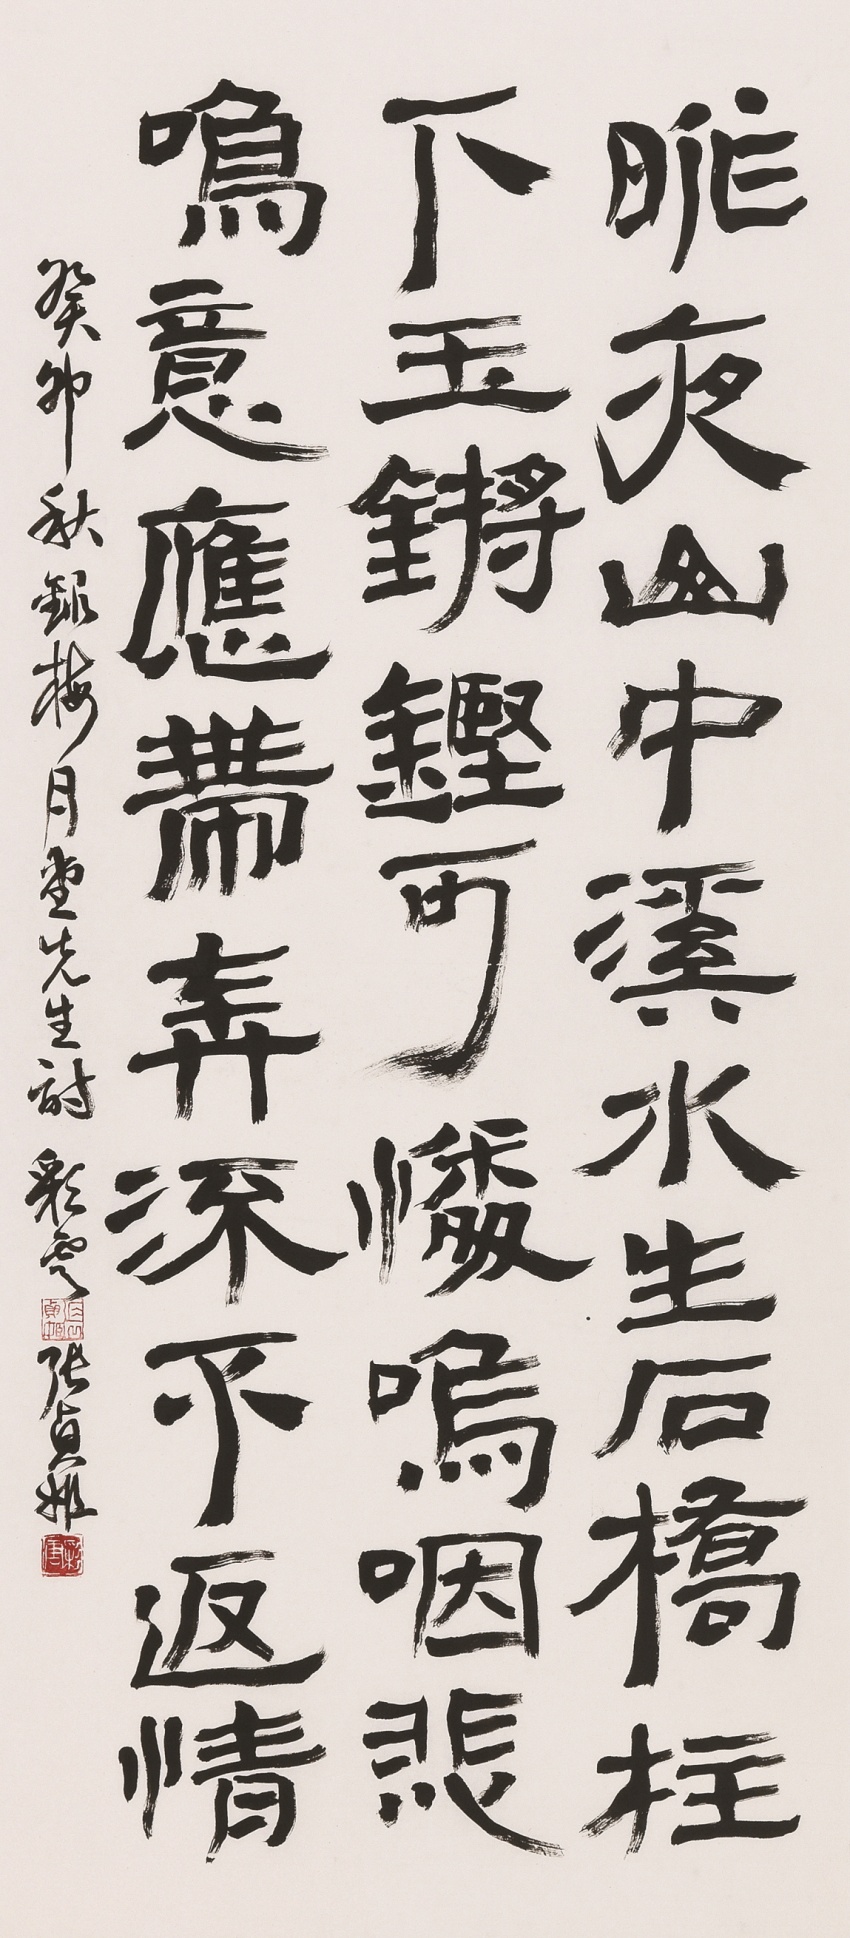 昨夜山中溪水生石橋柱
下玉鏘鏗可憐嗚咽悲
鳴意應帶奔流不返情
癸卯秋錄梅月堂先生詩 彩 張貞